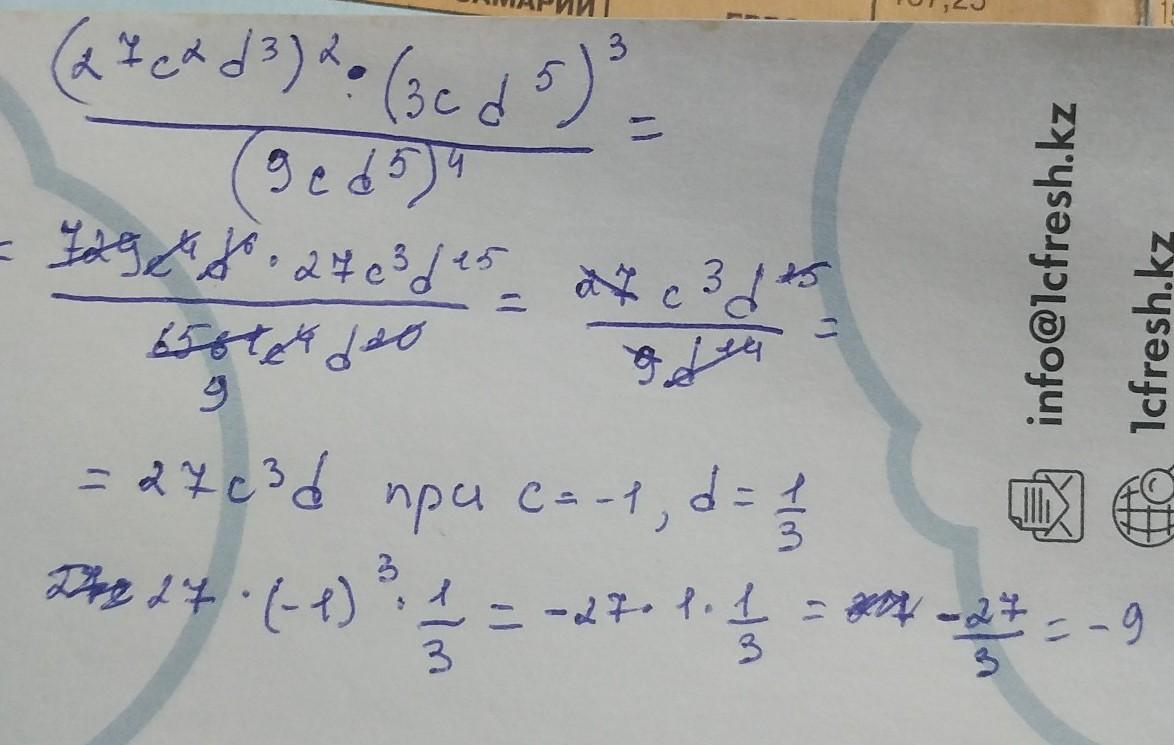 САМАРИЙ
157,25
(27c²d³)² · (3cd⁵)³ =
(9cd⁵)⁴
= 729c⁴d⁶ · 27c³d¹⁵ = 27c³d¹⁵ =
6561c⁴d²⁰ 9d¹⁴
9
= 27c³d при c = -1, d = 1/3
27 · (-1)³ · 1/3 = -27 · 1 · 1/3 = -27/3 = -9
info@1cfresh.kz
1cfresh.kz